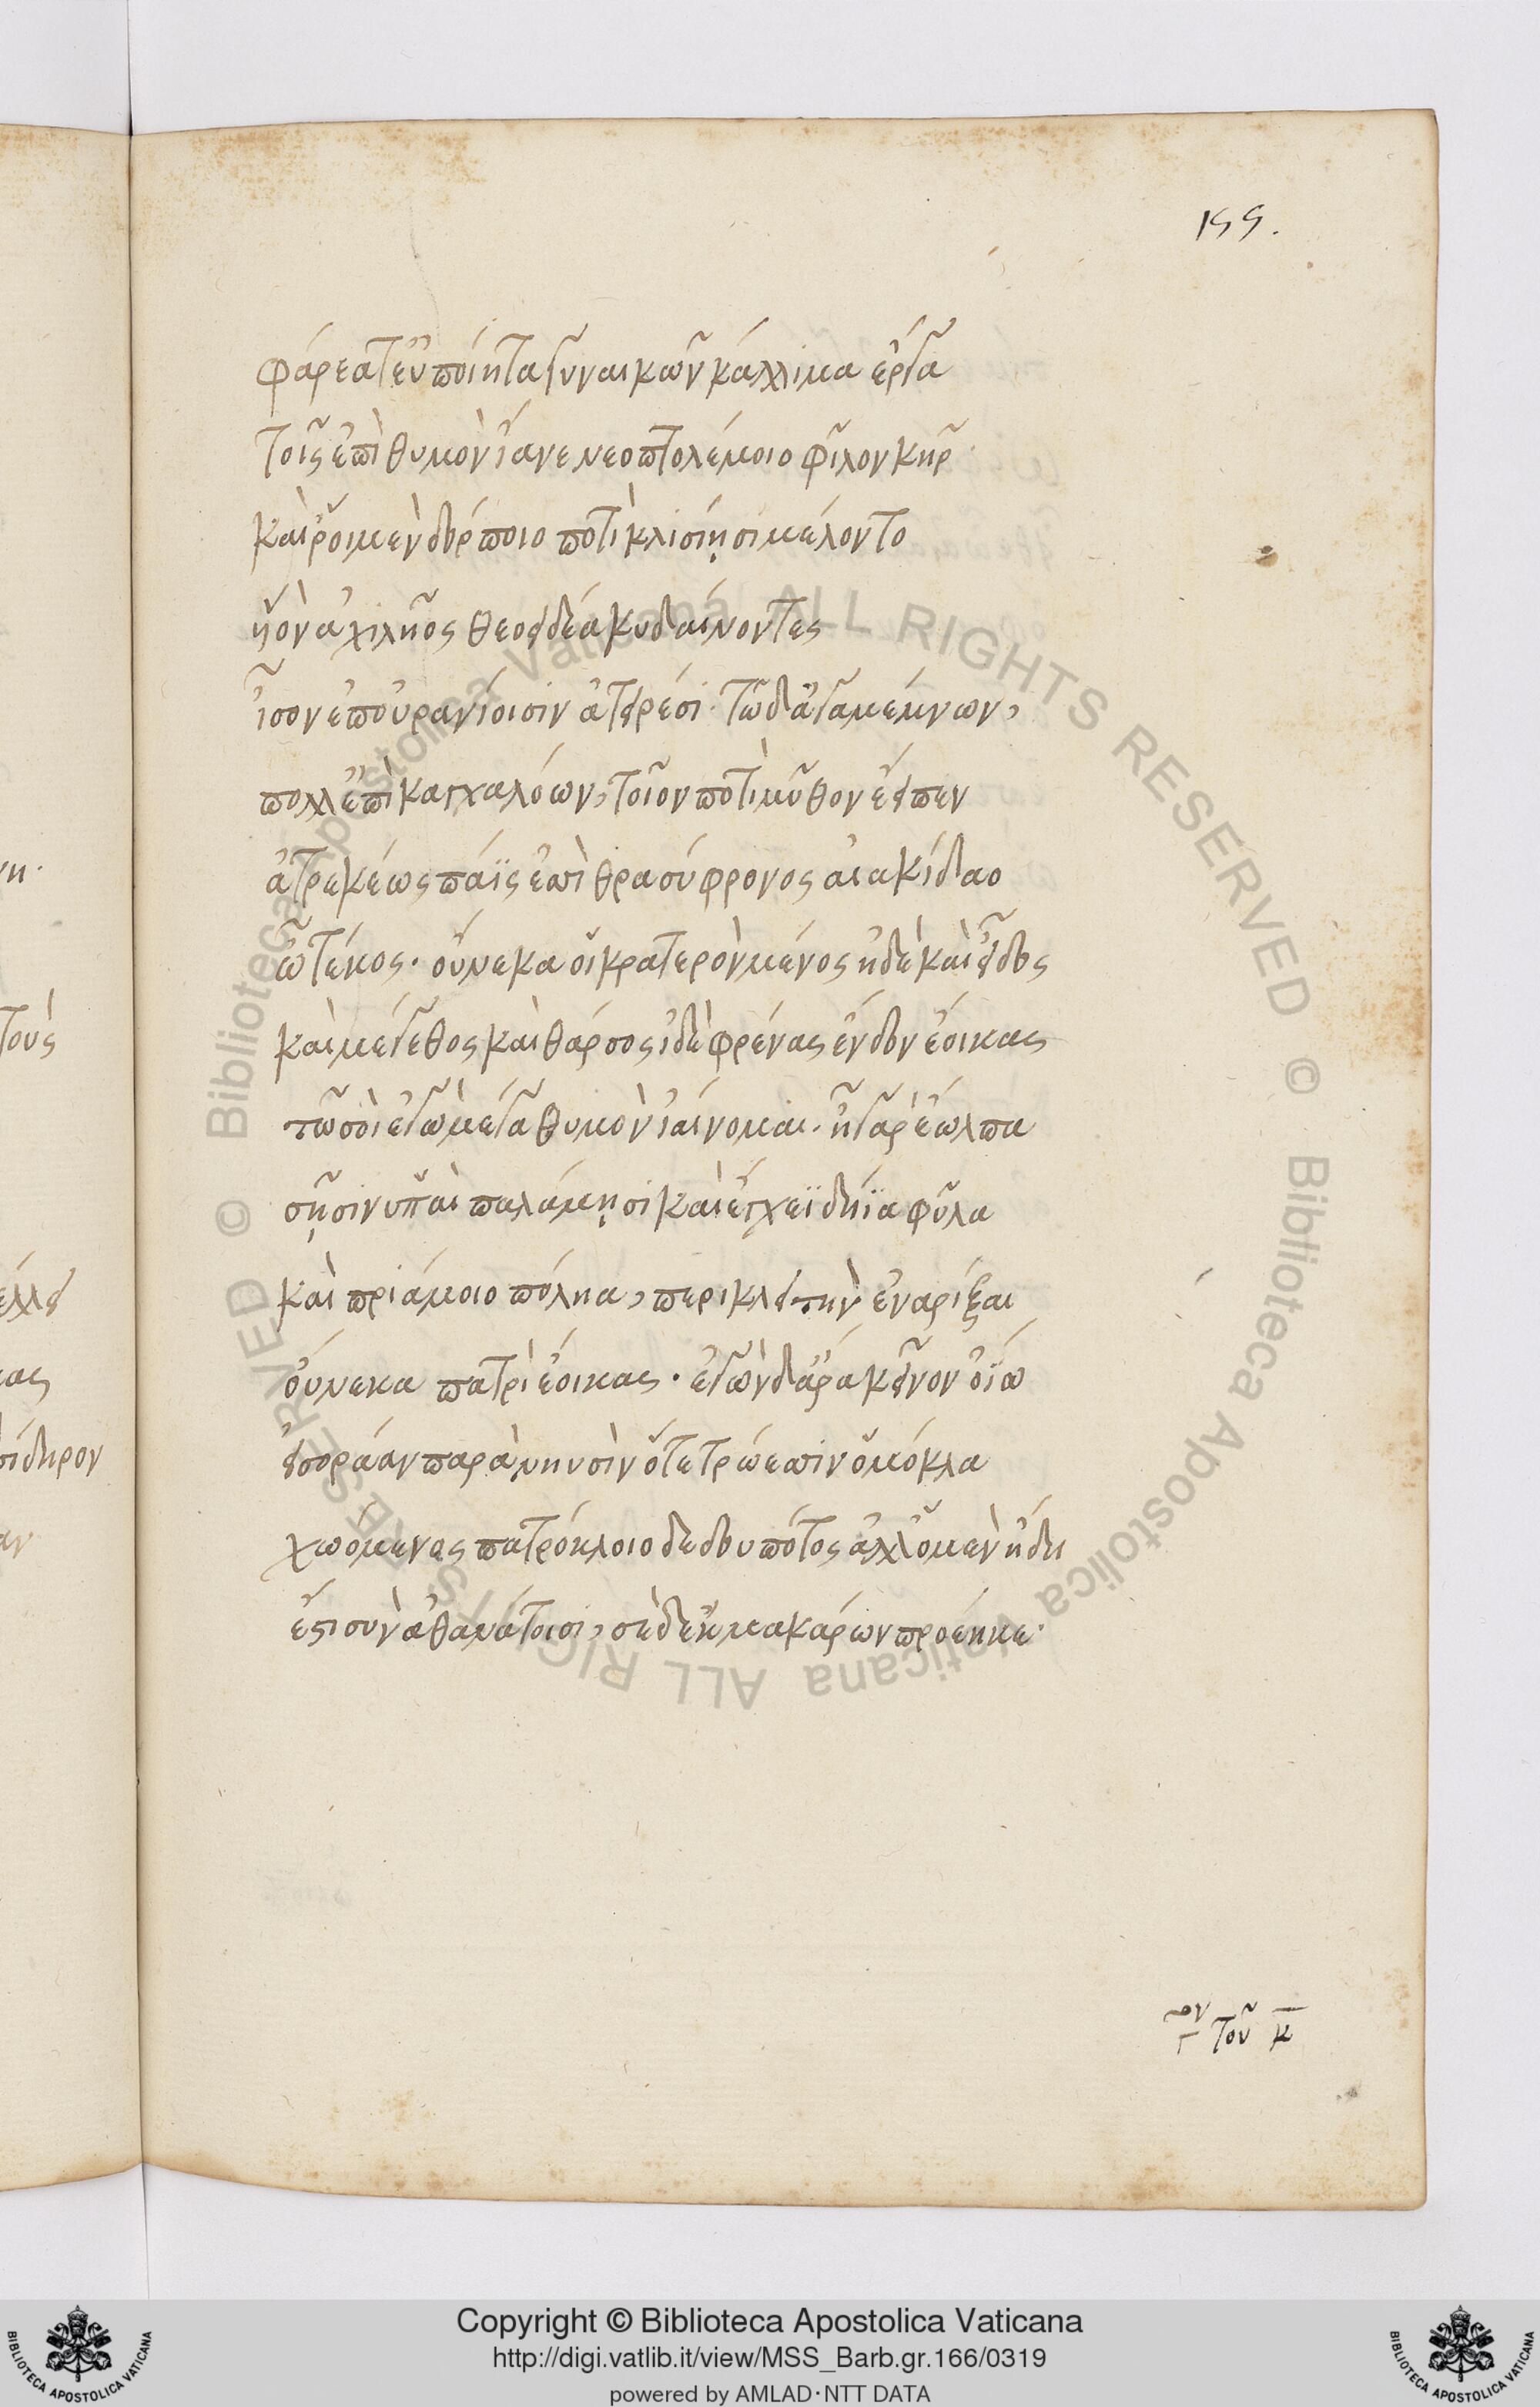 155.
φάρεα τ' εὐποίητα γυναικῶν κάλλιμα ἔργα
τοῖς ἐπὶ θυμὸν ἴανε νεοπτολέμοιο φῖλον κῆρ
καὶ ῥ' οἱ μὲν δόρποιο ποτὶ κλισίῃσι μέλοντο
υἷον ἀχιλῆος θεοειδέα κυδαίνοντες
ἶσον ἐπουρανίοισιν ἀτειρέσι. τῶ δ' ἀγαμέμνων,
πόλλ' ἐπικαγχαλόων, τοῖον ποτὶ μῦθον ἔειπεν
ἀτρεκέως πάϊς ἐσὶ θρασύφρονος αἰακίδαο
ὦ τέκος. οὕνεκα οἱ κρατερὸν μένος ἠδὲ καὶ εἶδος
καὶ μέγεθος καὶ θάρσος ἰδὲ φρένας ἔνδον ἔοικας
τῶ σοὶ ἐγὼ μέγα θυμὸν ἰαίνομαι. ἦ γὰρ ἔωλπα
σῇσιν ὑπαὶ παλάμῃσι καὶ ἔγχεϊ δήϊα φῦλα
καὶ πριάμοιο πόληα, περικλειτὴν ἐναρίξαι
οὕνεκα πατρὶ ἔοικας. ἐγὼν δ' ἄρα κεῖνον ὀίω
εἰσοράαν παρὰ νηυσὶν ὅτε τρώεσιν ὁμόκλα
χωόμενος πατρόκλοιο δεδουπότος ἀλλ' ὁ μὲν ἤδη
ἐστι σὺν ἀθανάτοισι, σὲ δ' ἐκ μακάρων προέηκε.
τοῦ κ
Copyright © Biblioteca Apostolica Vaticana
http://digi.vatlib.it/view/MSS_Barb.gr.166/0319
powered by AMLAD·NTT DATA